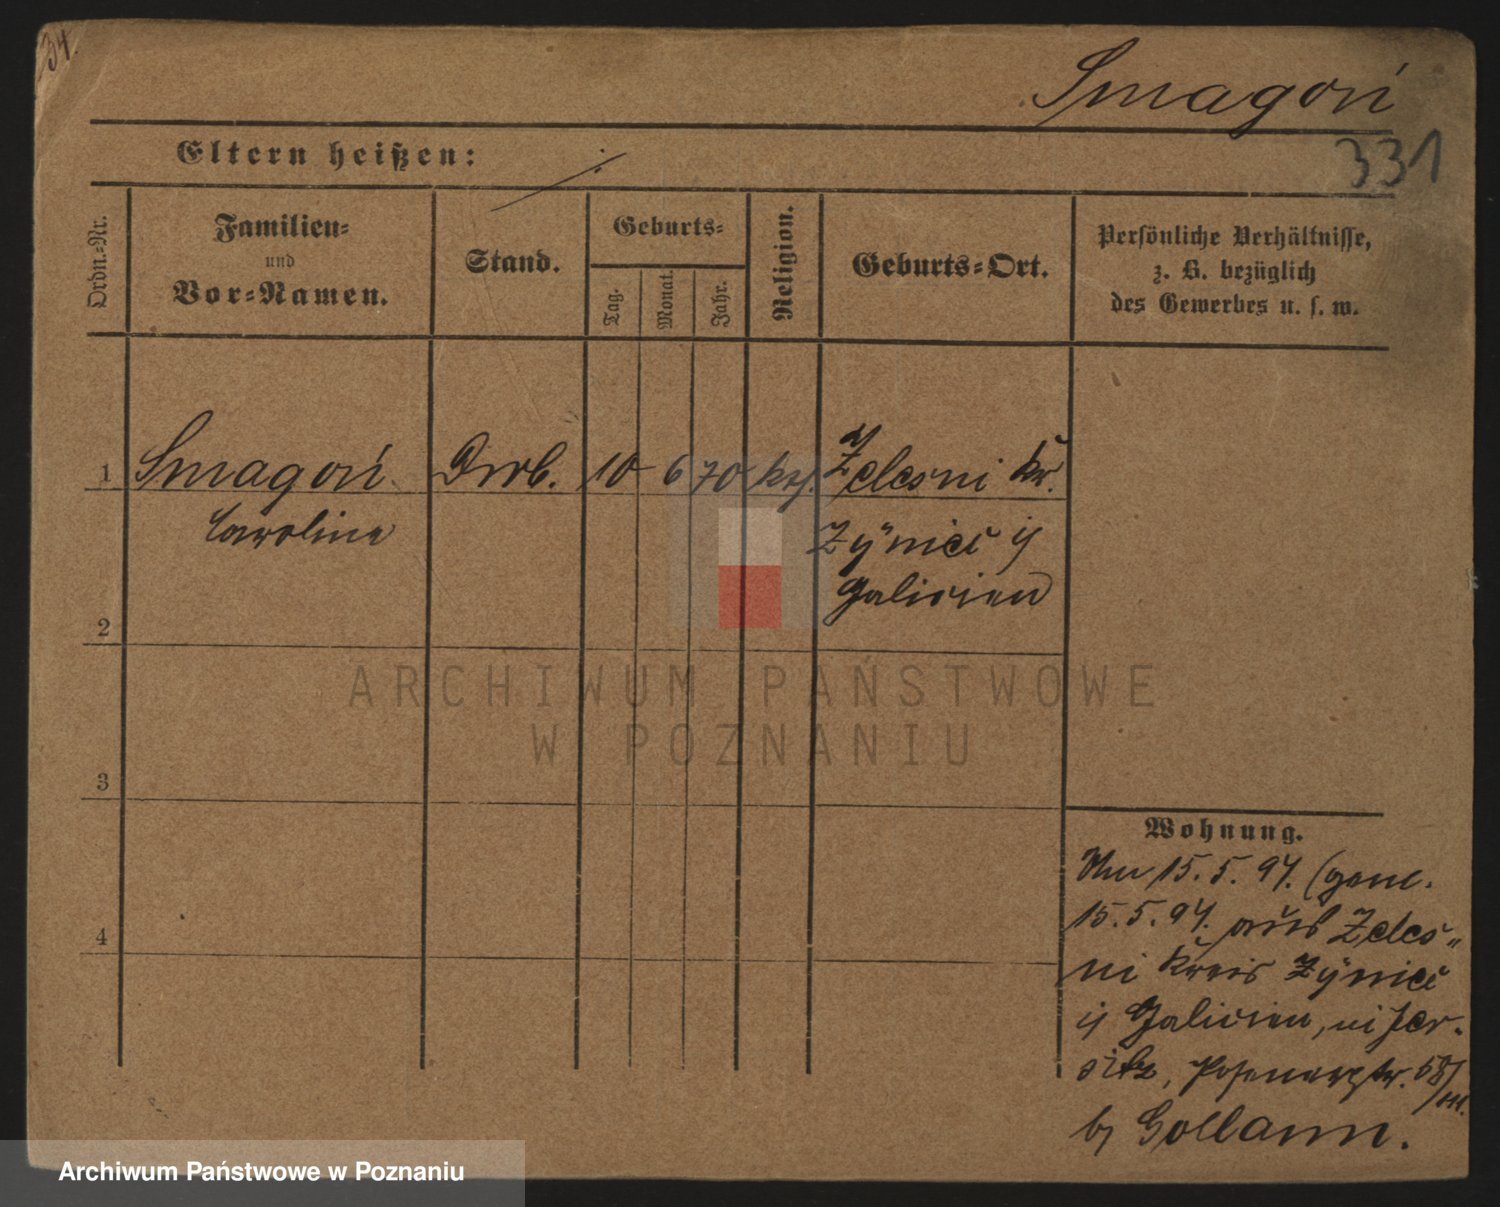 34.
Smagoń
331
Eltern heißen:
Ordn.-Nr.
Familien-
und
Vor-Namen.
Stand.
Geburts-
Tag.
Monat.
Jahr.
Religion.
Geburts-Ort.
Persönliche Verhältnisse,
z. B. bezüglich
des Gewerbes u. s. w.
1 Smagoń 10 6 70 Zelesni Kr.
Caroline
Galicien
2
3
4
Wohnung.
15.5.94. (gem.
15.5.94. aus Zeles-
ni Kreis
Galicien, in Jer-
sitz, Posenerstr. 58/III.
b/ Gollann.
ARCHIWUM PAŃSTWOWE
W POZNANIU
Archiwum Państwowe w Poznaniu